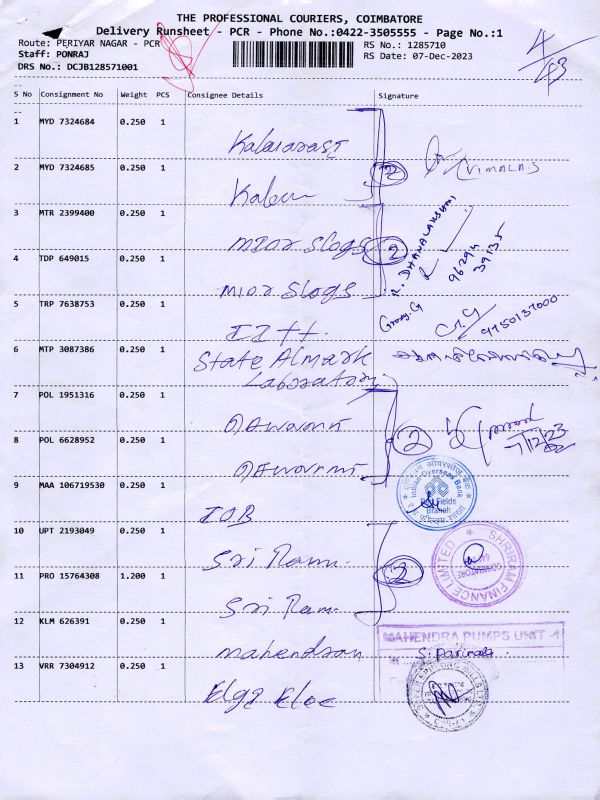 THE PROFESSIONAL COURIERS, COIMBATORE
Delivery Runsheet - PCR - Phone No.:0422-3505555 - Page No.:1
Route: PERIYAR NAGAR - PCR
RS No.: 1285710
Staff: PONRAJ
RS Date: 07-Dec-2023
DRS No.: DCJB128571001
4/43
S No Consignment No Weight PCS Consignee Details Signature
1 MYD 7324684 0.250 1 Kalaiarasi
2 MYD 7324685 0.250 1 2 VIMALA.S
3 MTR 2399400 0.250 1 2 R. DHANALAKSHMI
96294
39135
4 TDP 649015 0.250 1
5 TRP 7638753 0.250 1 9750137000
6 MTP 3087386 0.250 1 State Almark
Labratory
7 POL 1951316 0.250 1
8 POL 6628952 0.250 1 2 7/12/23
9 MAA 106719530 0.250 1 IOB
Indian Overseas Bank
Fields
Branch
10 UPT 2193049 0.250 1 Sri Ram.
SHRIRAM FINANCE LIMITED
COIMBATORE
11 PRO 15764308 1.200 1 Sri Ram. 2
12 KLM 626391 0.250 1 Mahendran
MAHENDRA PUMPS UNIT -
13 VRR 7304912 0.250 1 Elgi Elec